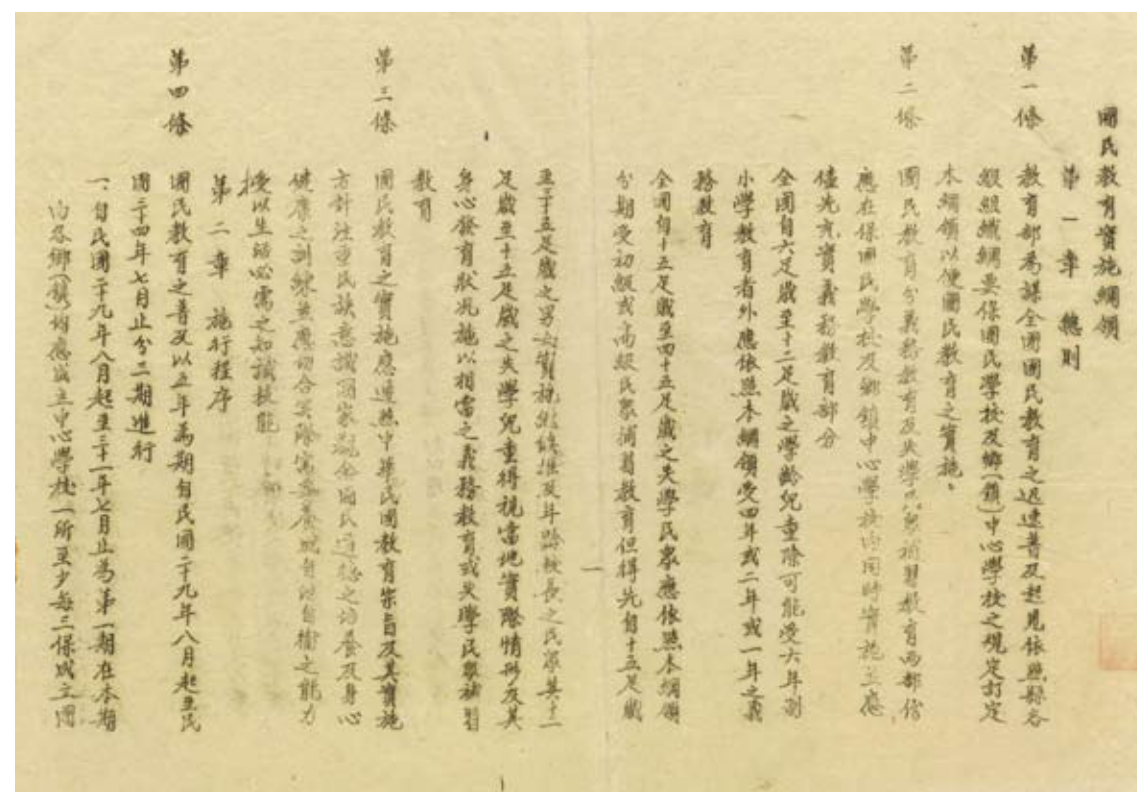 國民教育實施綱領
第一章 總則
第一條 教育部為謀全國國民教育之迅速普及起見依照縣各
級組織綱要保國民學校及鄉(鎮)中心學校之規定訂定
本綱領以便國民教育之實施。
第二條 國民教育分義務教育及失學民眾補習教育兩部份
應在保國民學校及鄉鎮中心學校內同時實施並應
儘先充實義務教育部分
全國自六足歲至十二足歲之學齡兒童除可能受六年制
小學教育者外應依照本綱領受四年或二年或一年之義
務教育
全國自十五足歲至四十五足歲之失學民眾應依照本綱領
分期受初級或高級民眾補習教育但得先自十五足歲
至三十五足歲之男女實施繼續推及年齡較長之民眾其十二
足歲至十五足歲之失學兒童得視當地實際情形及其
身心發育狀況施以相當之義務教育或失學民眾補習
教育
第三條 國民教育之實施應遵照中華民國教育宗旨及其實施
方針注重民族意識國家觀念國民道德之培養及身心
健康之訓練並應切合實際需要養成自治自衛之能力
授以生活必需之知識技能
第二章 施行程序
第四條 國民教育之普及以五年為期自民國二十九年八月起至民
國三十四年七月止分三期進行
一、自民國二十九年八月起至三十一年七月止為第一期在本期
內各鄉(鎮)均應成立中心學校一所至少每三保成立國
一